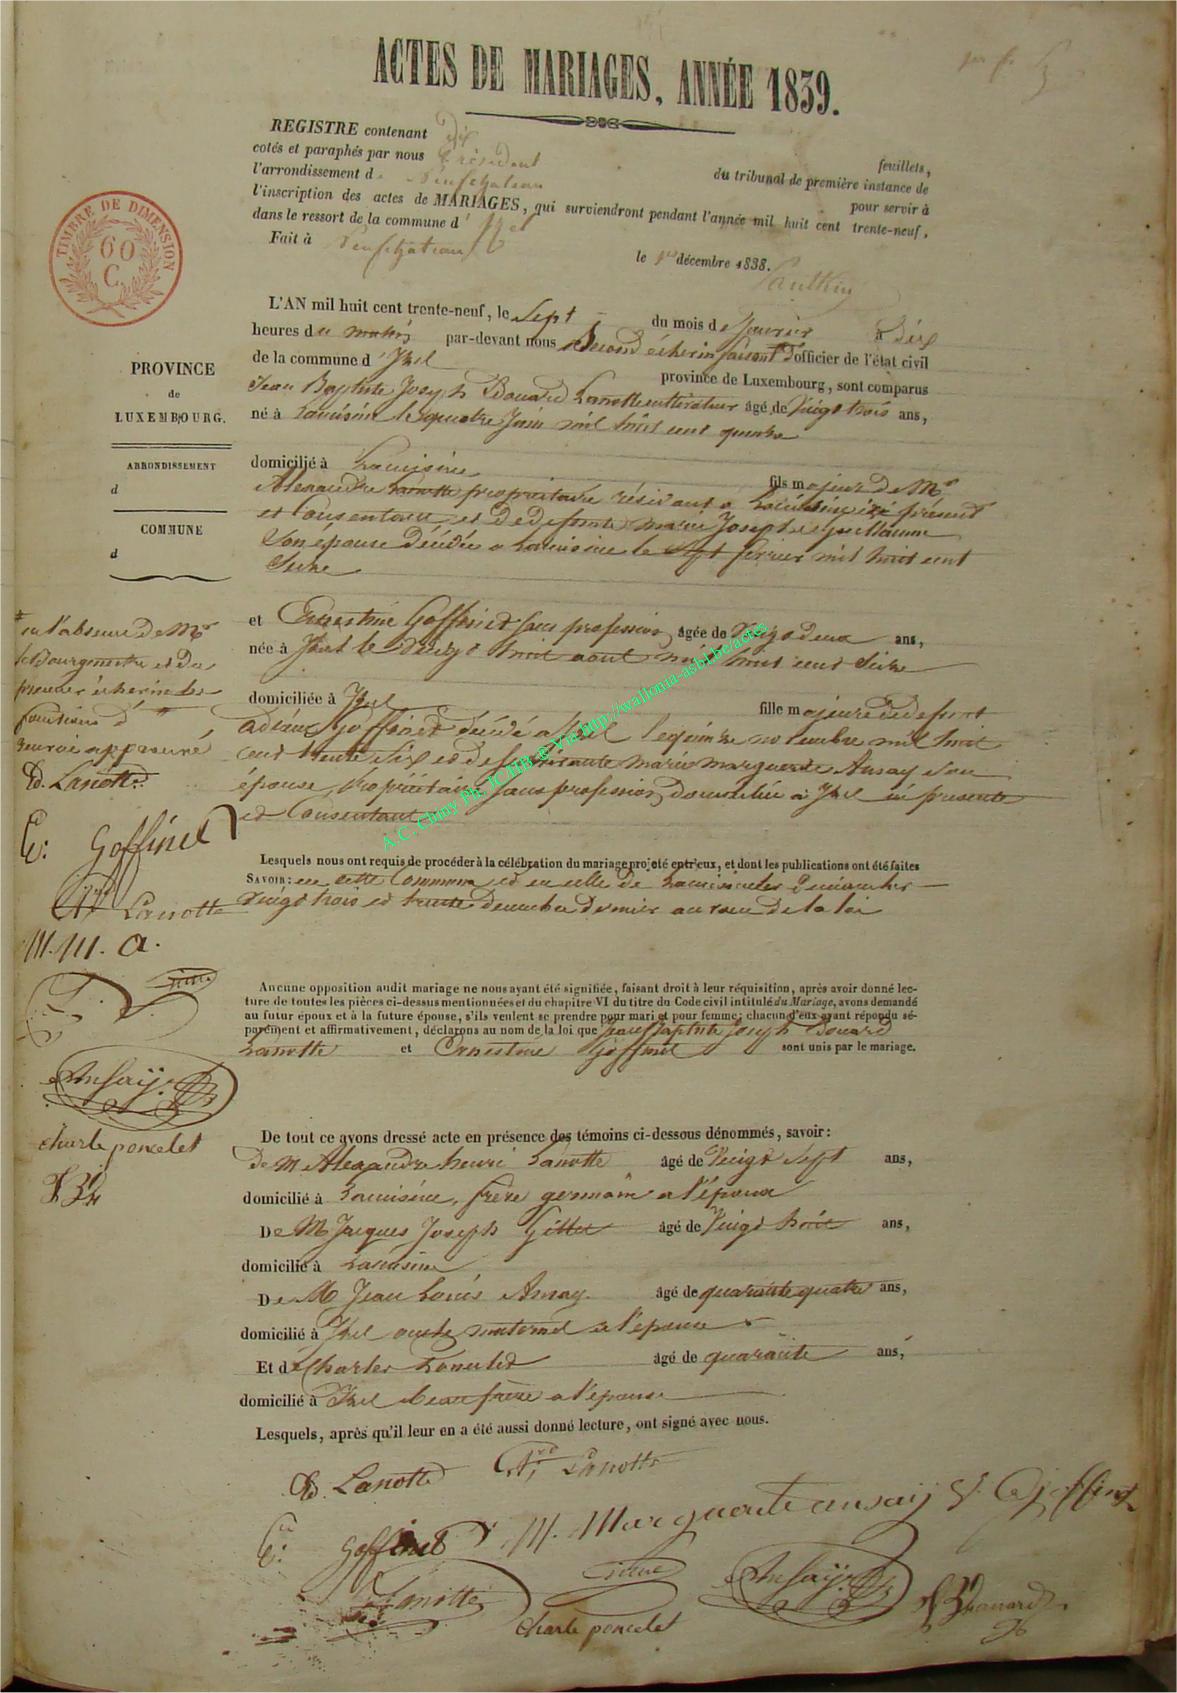 ACTES DE MARIAGES, ANNÉE 1839.
REGISTRE contenant dix feuillets,
cotés et paraphés par nous Président du tribunal de première instance de
l'arrondissement de Neufchateau pour servir à
l'inscription des actes de MARIAGES, qui surviendront pendant l'année mil huit cent trente-neuf,
dans le ressort de la commune d'Izel
Fait à Neufchateau le 1er décembre 1838.
TIMBRE DE DIMENSION
60
C.
PROVINCE
de
LUXEMBOURG.
ARRONDISSEMENT
d
COMMUNE
d
L'AN mil huit cent trente-neuf, le Sept du mois de Janvier à dix
heures du matin par-devant nous Second échevin faisant d'officier de l'état civil
de la commune d'Izel province de Luxembourg, sont comparus
Jean Baptiste Joseph Edouard Lanotte cultivateur âgé de Vingt trois ans,
né à Lacuisine le quatre Juin mil huit cent quinze
domicilié à Lacuisine fils majeur de Mr
Alexandre Lanotte propriétaire résidant a Lacuisine ici présent
et Consentant et de défunte marie Josephe Guillaume
Son épouse décédée a Lacuisine le Sept fevrier mil huit cent
Seize
et Ernestine Goffinet sans profession âgée de Vingt deux ans,
née à Izel le Vingt huit aout mil huit cent Seize
domiciliée à Izel fille majeure de defunt
adrien Goffinet décédé a Izel le quinze novembre mil huit
cent trente Six et de marie marguerite Ansay Son
épouse, propriétaire Sans profession, domiciliée à Izel ici presente
et Consentante
en l'absence de Mr
le Bourgmestre et du
premier échevin les
fonctions d'
renvoi approuvé
Ed. Lanotte
E. Goffinet
Al Lanotte
M. M. a.
Gillet
Ansay
charle poncelet
Lesquels nous ont requis de procéder à la célébration du mariage projeté entr'eux, et dont les publications ont été faites
SAVOIR: en cette Commune et en celle de Lacuisine les Dimanches
Vingt trois et trente decembre dernier au vœu de la loi
Aucune opposition audit mariage ne nous ayant été signifiée, faisant droit à leur réquisition, après avoir donné lec-
ture de toutes les pièces ci-dessus mentionnées et du chapitre VI du titre du Code civil intitulé du Mariage, avons demandé
au futur époux et à la future épouse, s'ils veulent se prendre pour mari et pour femme; chacun d'eux ayant répondu sé-
parément et affirmativement, déclarons au nom de la loi que Jean Baptiste Joseph Edouard
Lanotte et Ernestine Goffinet sont unis par le mariage.
De tout ce avons dressé acte en présence des témoins ci-dessous dénommés, savoir:
De M Alexandre henri Lanotte âgé de Vingt Sept ans,
domicilié à Lacuisine, frère germain a l'époux
De M Jacques Joseph Gillet âgé de Vingt huit ans,
domicilié à Lacuisine
De M Jean Louis Ansay âgé de quarante quatre ans,
domicilié à Izel oncle maternel a l'épouse
Et de Charles Poncelet âgé de quarante ans,
domicilié à Izel beau frère a l'épouse
Lesquels, après qu'il leur en a été aussi donné lecture, ont signé avec nous.
Ed. Lanotte Al Lanotte
E. Goffinet M. Marguerite ansay Goffinet
Lanotte Gillet Ansay
charle poncelet
A.C. Chiny Ph. JCMB @ Via http://wallonia-asbl.be/actes